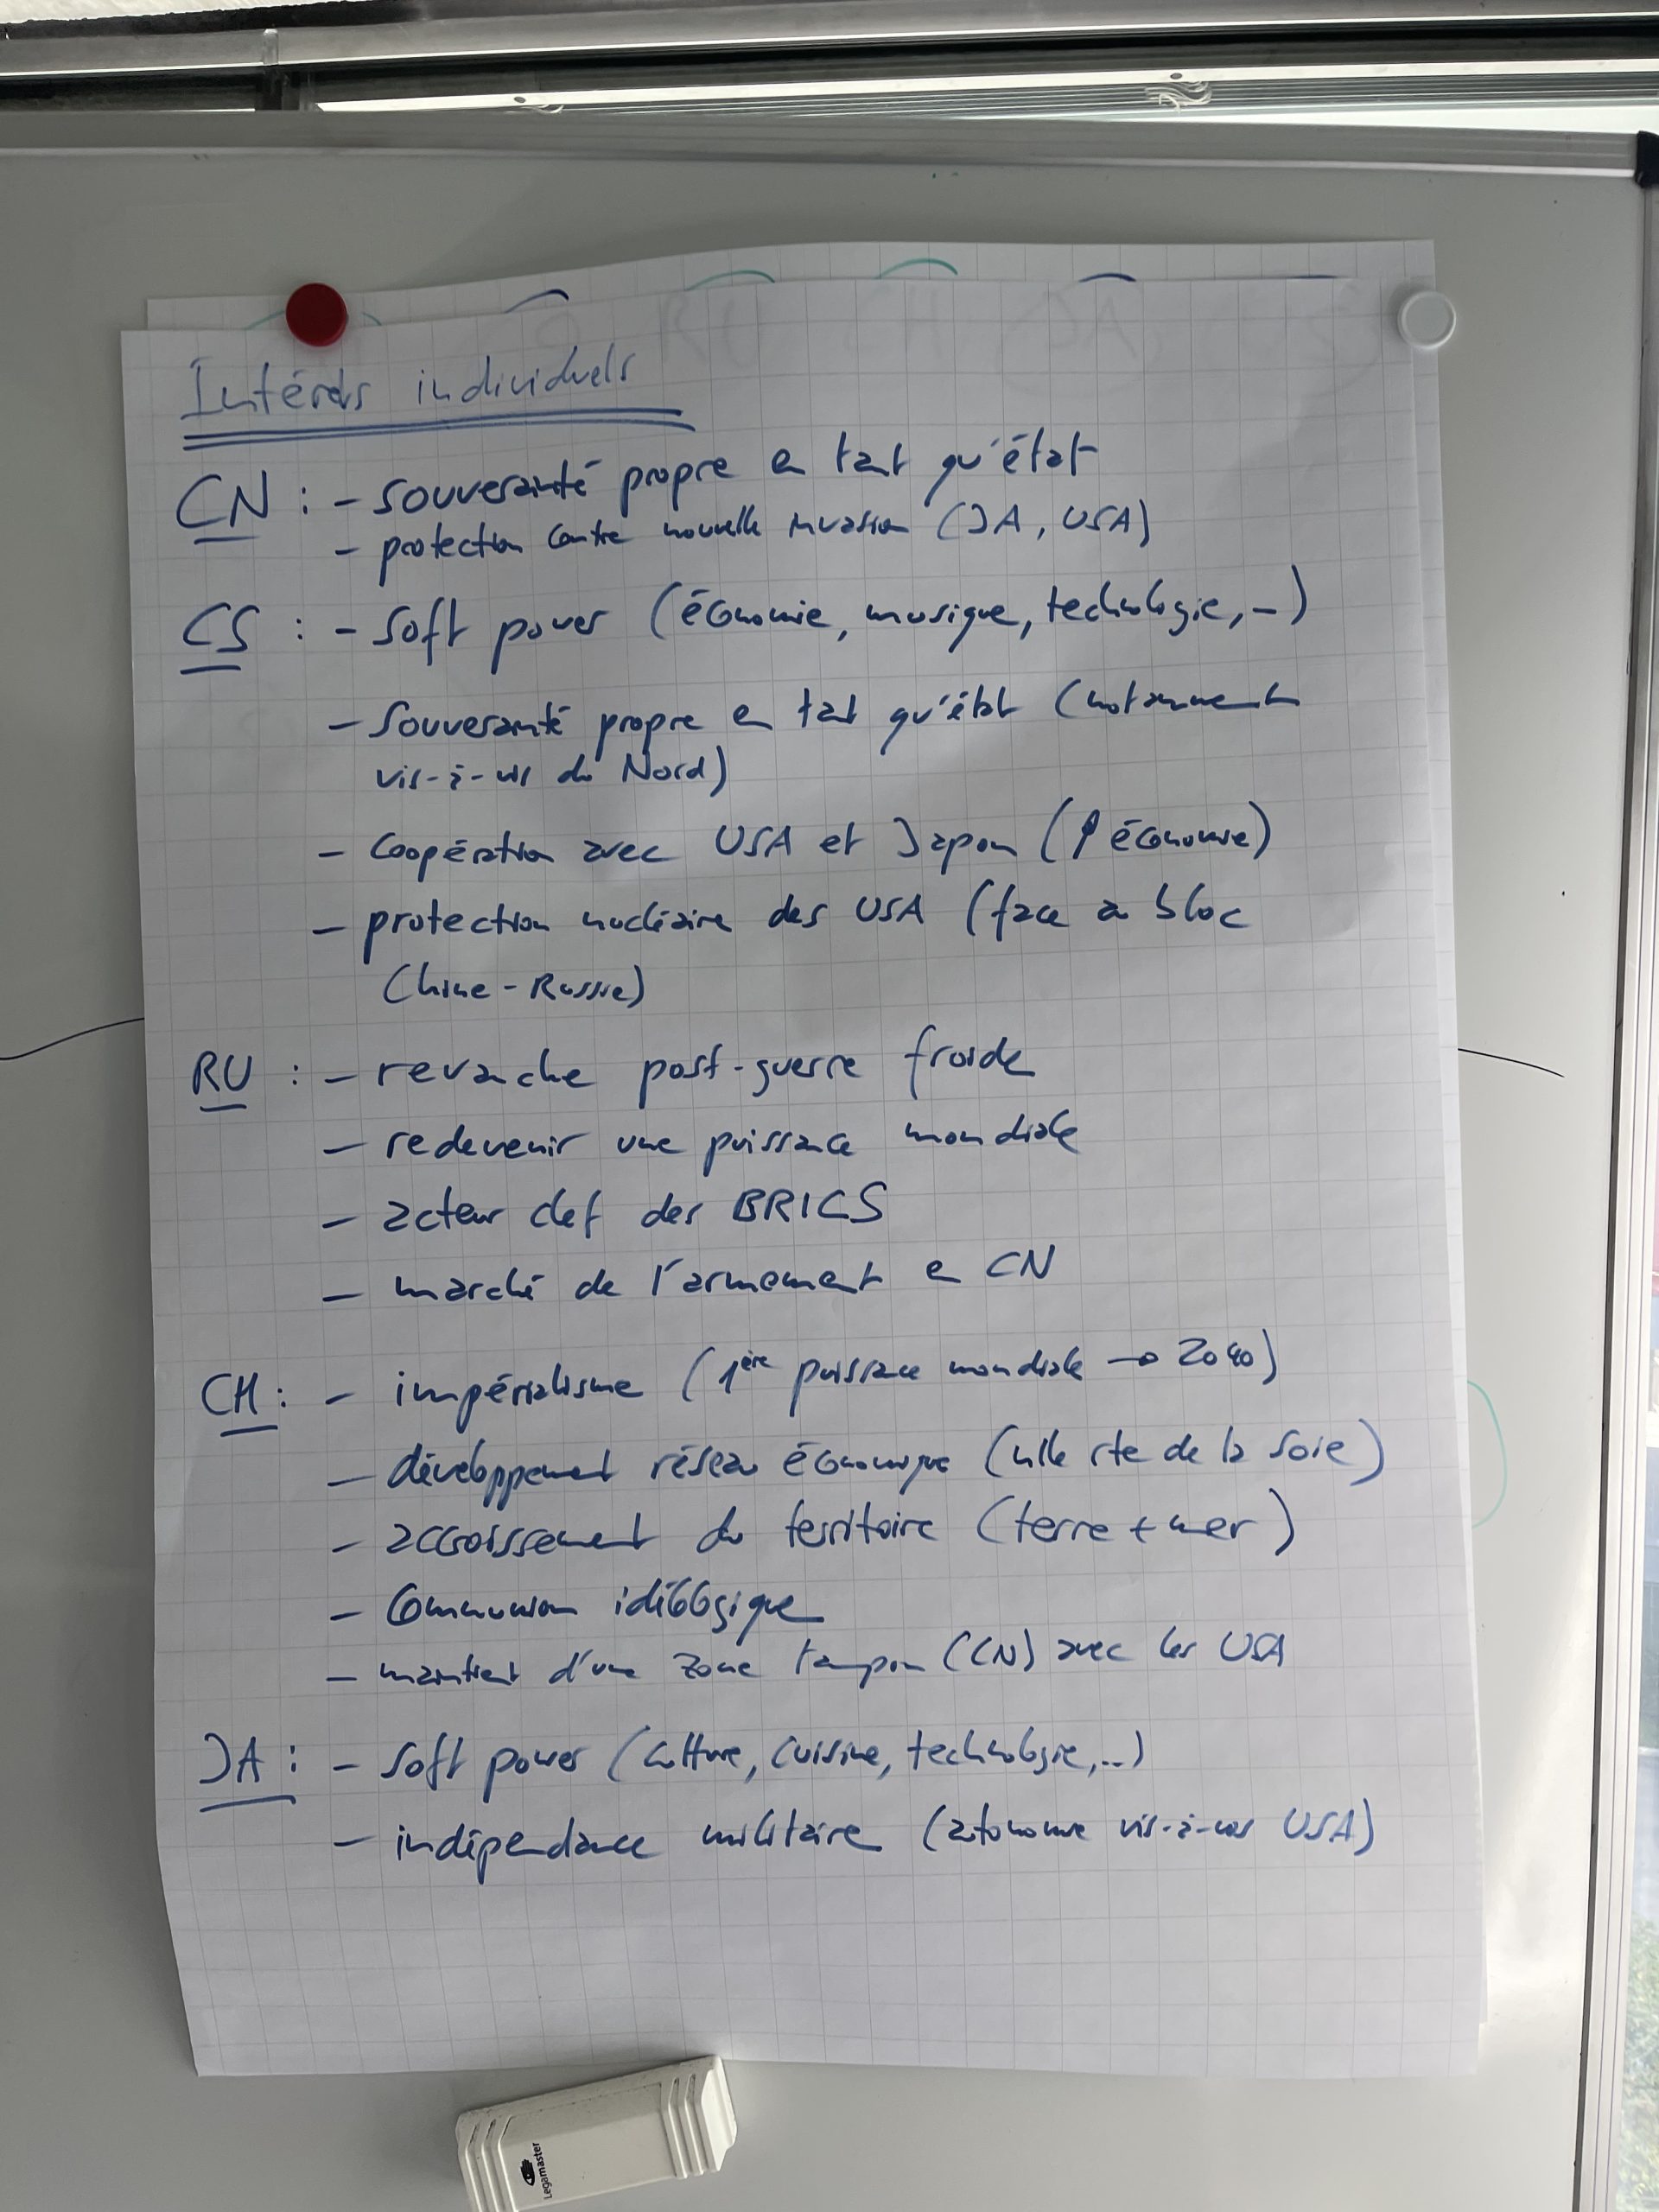 Intérêts individuels
CN : - souveraineté propre en tant qu'état
- protection contre nouvelle invasion (JA, USA)
CS : - soft power (économie, musique, technologie, ...)
- Souveraineté propre en tant qu'état (notamment
vis-à-vis du Nord)
- Coopération avec USA et Japon (↑ économie)
- protection nucléaire des USA (face au bloc
Chine-Russie)
RU : - revanche post-guerre froide
- redevenir une puissance mondiale
- acteur clef des BRICS
- marché de l'armement en CN
CH : - impérialisme (1ère puissance mondiale → 2040)
- développement réseau économique (nlle rte de la soie)
- accroissement du territoire (terre + mer)
- Communion idéologique
- maintient d'une zone tampon (CN) avec les USA
JA : - soft power (culture, cuisine, technologie, ...)
- indépendance militaire (autonomie vis-à-vis USA)
Legamaster